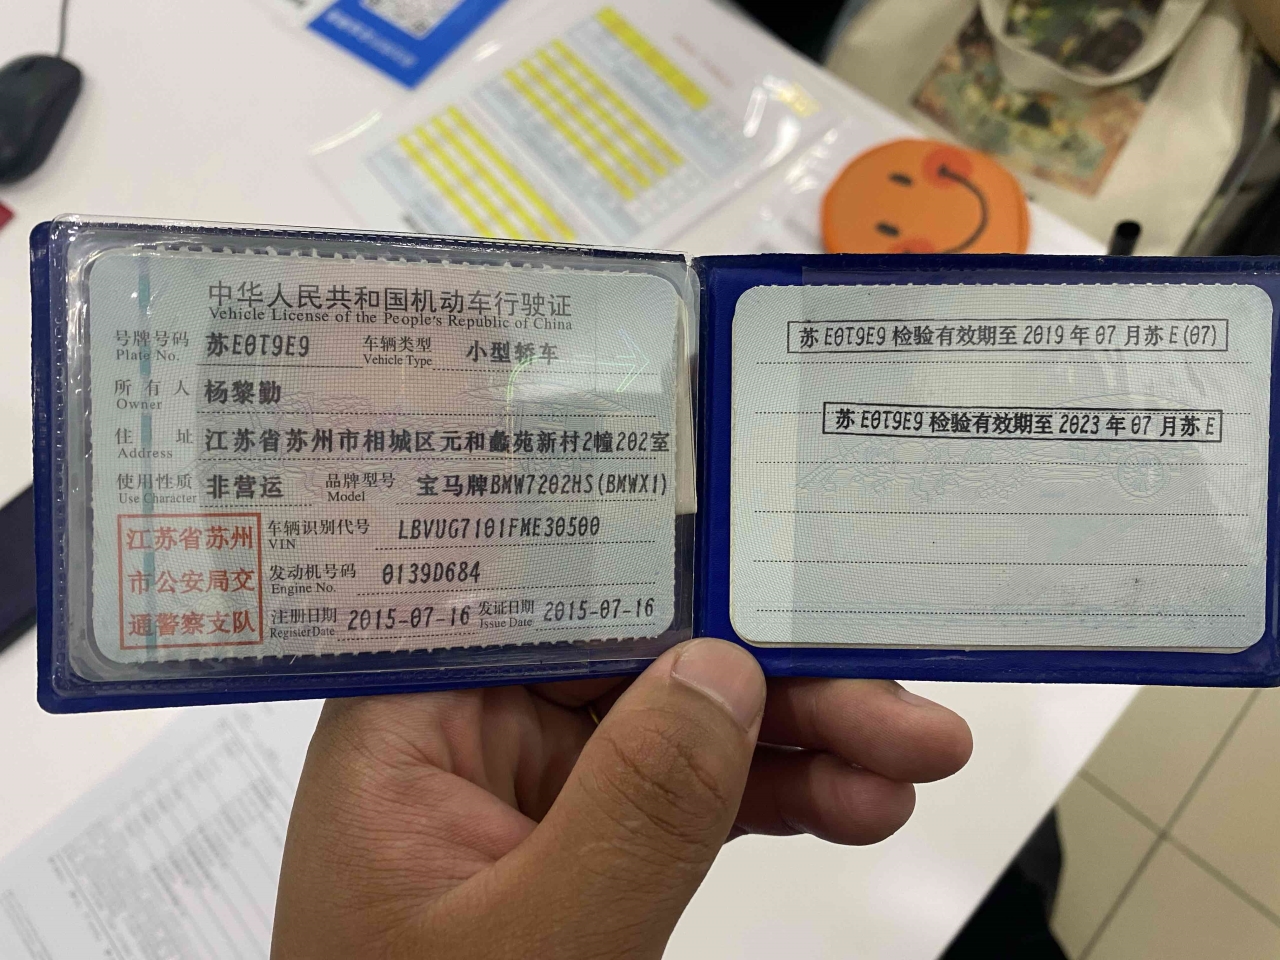 中华人民共和国机动车行驶证
Vehicle License of the People's Republic of China
号牌号码 苏E0T9E9 车辆类型 小型轿车
Plate No. Vehicle Type
所有人 杨黎勤
Owner
住址 江苏省苏州市相城区元和蠡苑新村2幢202室
Address
使用性质 非营运 品牌型号 宝马牌BMW7202HS(BMWX1)
Use Character Model
江苏省苏州
市公安局交
通警察支队
车辆识别代号 LBVUG7101FME30500
VIN
发动机号码 0139D684
Engine No.
注册日期 2015-07-16 发证日期 2015-07-16
Register Date Issue Date
苏E0T9E9检验有效期至2019年07月苏E(07)
苏E0T9E9检验有效期至2023年07月苏E